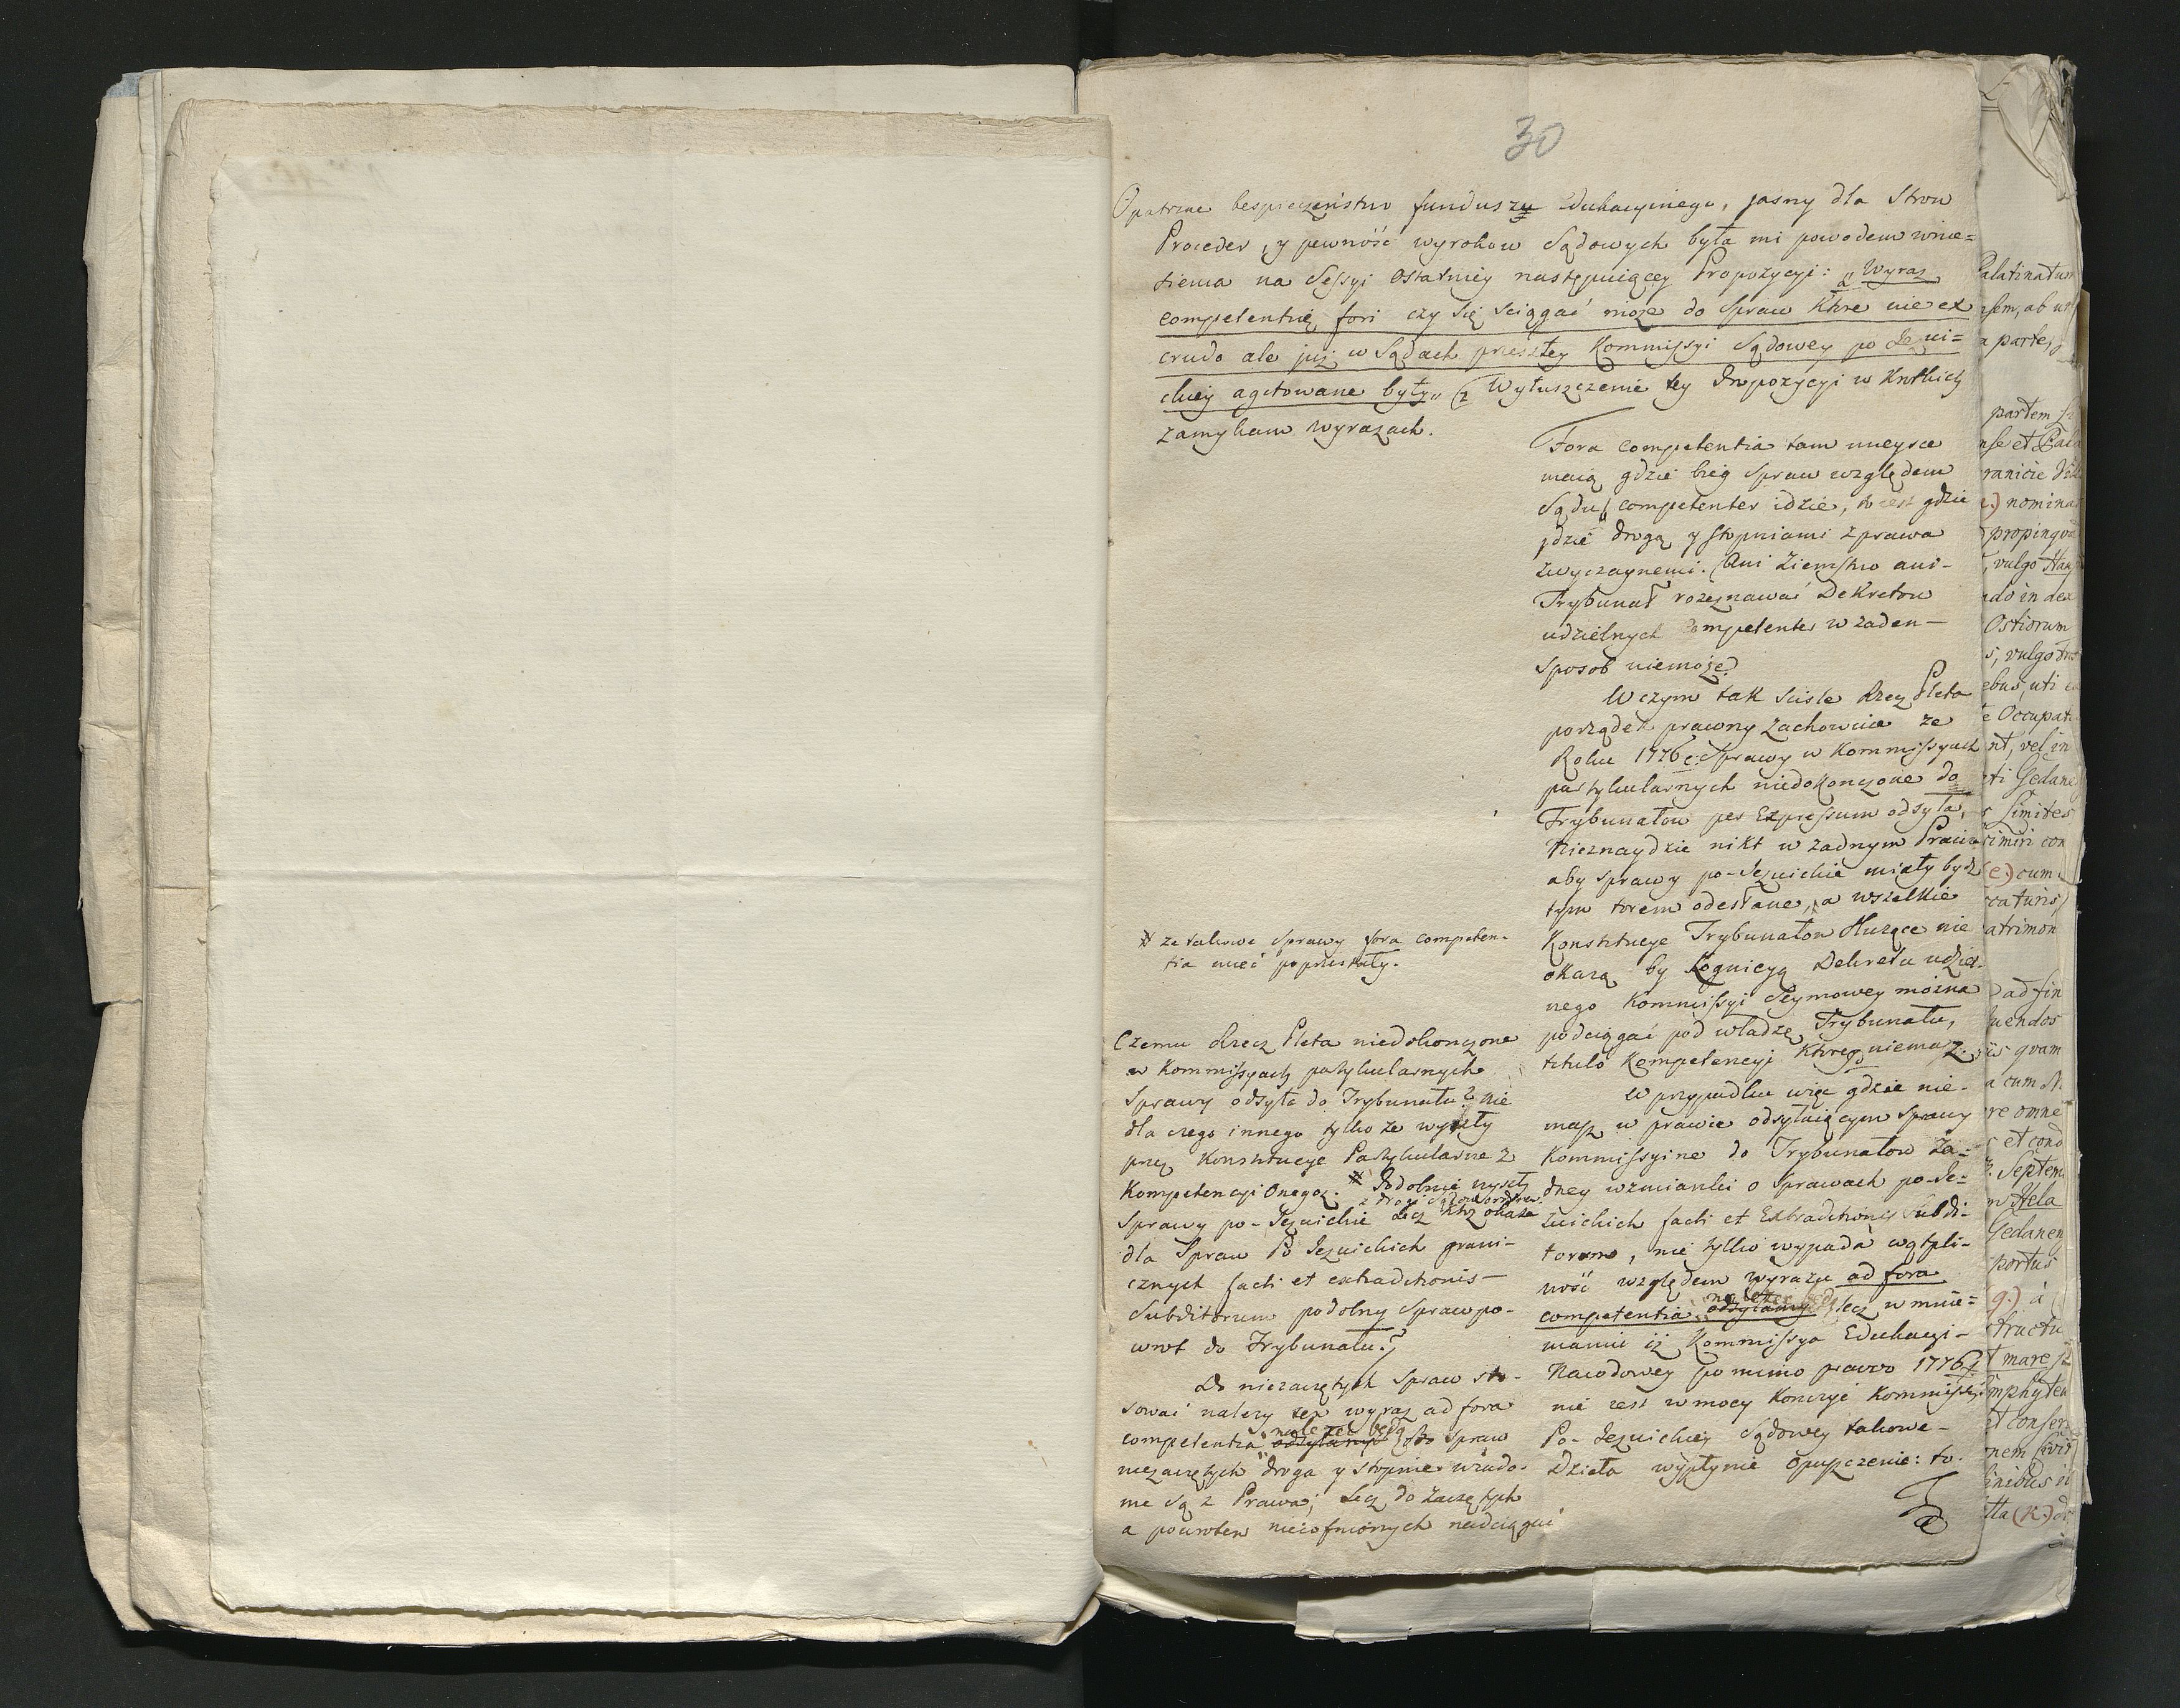 30
Opatrzne bespieczeństwo funduszu Edukacyinego, jasny dla Stron
Proceder, y pewność wyrokow Sądowych była mi powodem wnie=
sienia na Sessyi Ostatniey następuiącey Propozycyi: Wyraz
competentię fori czy się sciągać może do Spraw Ktore nie ex
crudo ale już w Sądach przeszłey Kommissyi Sądowey po Jezui=
ckiey agitowane były" Wyłuszczenie tey Propozycyi w Krotkich
zamykam wyrazach.
Fora competentia tam mieysce
maią gdzie bieg Spraw względem
Sądu competenter idzie, to iest gdzie
jdzie drogą y stopniami z prawa
zwyczaynemi. Ani Ziemstwo ani-
Trybunał rozeznawać Dekretow
udzielnych competenter w żaden-
Sposob niemoże.
W czym tak sciśle Rzecz Plta
porządek prawny zachowuie że
Roku 1776 Sprawy w Kommissyach
partykularnych niedokonczone do
Trybunałow per Expressum odsyła,
Nieznaydzie nikt w żadnym Prawie
aby Sprawy po-Jezuickie miały bydź
tym torem odesłane, a wszelkie
Konstytucye Trybunałow służące nie
okażą by Kognicyą Dekretu udziel-
nego Kommissyi Seymowey można
podciągać pod władzę Trybunału,
titulo Kompetencyi Ktorego niemasz.
W przypadku więc gdzie nie-
masz w prawie odsyłaiącym Sprawy
Kommissyine do Trybunałow ża=
dney wzmianki o Sprawach po-Je=
zuickich facti et Extraditionis Subdi-
torum, nie tylko wypada wątpli-
wość względem wyrazu ad fora
należeć będą
competentia odsyłamy lecz w mnie=
maniu iż Kommissya Edukacyi-
Narodowey po mimo prawo 1776
nie iest w mocy Konczyć Kommissyi
Po-Jezuickiey Sądowey takowe-
Dzieła wypłynie opuszczenie: to.
# że takowe sprawy fora competen-
tia mieć poprzestały.
Czemu Rzecz Plta niedokonczone
w Kommissyach partykularnych
Sprawy odsyła do Trybunału? nie
dla czego innego tylko że wyszły
przez Konstytucye Partykularne z
Kompetencyi Onegoż. # Podobnie wyszły
z drogi
Sprawy po-Jezuickie Lecz Ktoż okaże
dla Spraw Po Jezuickich grani-
cznych facti et extraditionis-
Subditorum podobny Spraw po-
wrot do Trybunału?
Do niezaczętych Spraw sto-
sować należy ten wyraz ad fora
należeć będą
competentia odsyłamy bo Spraw
niezaczętych droga y stopnie wiado-
me są z Prawa; Lecz do zaczętych
a powrotem niecofnionych naciągać
Palatinatum
partem
nomina
vulgo
Ostiorum
Occupat
Gedane
Limites
cum
ad fin
quam
omne
et cond
Septem
Hela
Gedanen
portus
g.) à
mare
(K.)